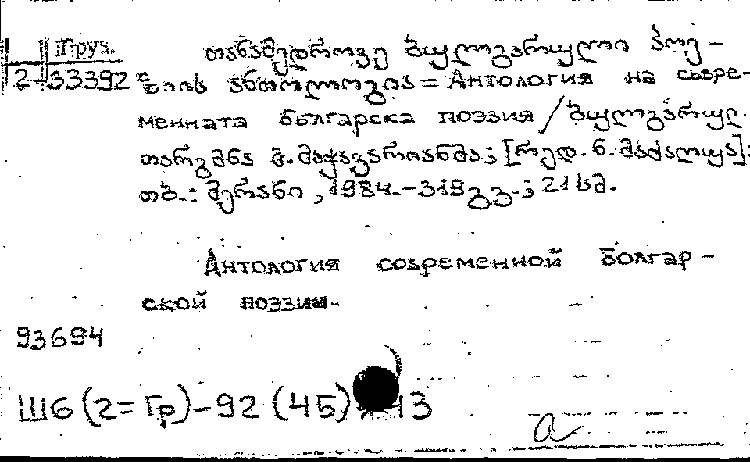 Груз.
2-33392
თანამედროვე ბულგარული პოე-
ზიის ანთოლოგია = Антология на съвре-
менната българска поэзия / ბულგარულ.
თარგმნა გ. მაჭავარიანმა; [რედ. ნ. მაქალუა]:
თბ.: მერანი, 1984.-319 გვ.; 21 სმ.
Антология современной болгар-
ской поэзии.
93694
Ш6 (2=Гр)-92 (4Б) 13
а